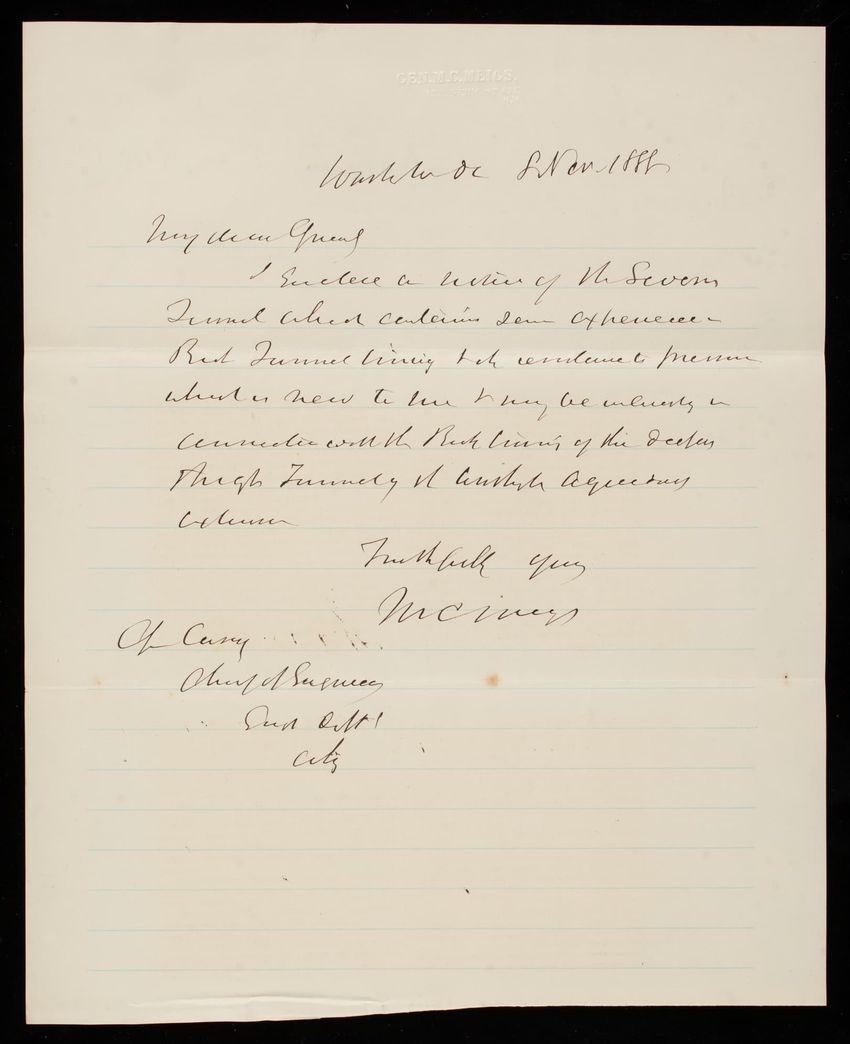 GEN. M. C. MEIGS.
Washton DC 8 Nov. 1888
My dear General
I Enclose a notice of the Severn
Tunnel which contains some experience
Brick Tunnel lining & its resistance to pressure
which is new to me & may be in
connection with the Brick lining of the
Tunnel of the Aqueduct
extension
Faithfully yours
M C Meigs
Casey
Chief of Engineers
City